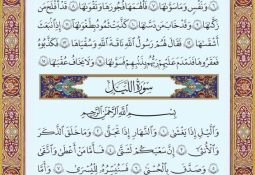 وَنَفْسٍ وَمَا سَوَّىٰهَا ٧ فَأَلْهَمَهَا فُجُورَهَا وَتَقْوَىٰهَا ٨ قَدْ أَفْلَحَ مَن
زَكَّىٰهَا ٩ وَقَدْ خَابَ مَن دَسَّىٰهَا ١٠ كَذَّبَتْ ثَمُودُ بِطَغْوَىٰهَا ١١ إِذِ ٱنۢبَعَثَ
أَشْقَىٰهَا ١٢ فَقَالَ لَهُمْ رَسُولُ ٱللَّهِ نَاقَةَ ٱللَّهِ وَسُقْيَٰهَا ١٣ فَكَذَّبُوهُ
فَعَقَرُوهَا فَدَمْدَمَ عَلَيْهِمْ رَبُّهُم بِذَنۢبِهِمْ فَسَوَّىٰهَا ١٤ وَلَا يَخَافُ عُقْبَٰهَا ١٥
سُورَةُ اللَّيْلِ
بِسْمِ ٱللَّهِ ٱلرَّحْمَٰنِ ٱلرَّحِيمِ
وَٱلَّيْلِ إِذَا يَغْشَىٰ ١ وَٱلنَّهَارِ إِذَا تَجَلَّىٰ ٢ وَمَا خَلَقَ ٱلذَّكَرَ
وَٱلْأُنثَىٰ ٣ إِنَّ سَعْيَكُمْ لَشَتَّىٰ ٤ فَأَمَّا مَنْ أَعْطَىٰ وَٱتَّقَىٰ
٥ وَصَدَّقَ بِٱلْحُسْنَىٰ ٦ فَسَنُيَسِّرُهُۥ لِلْيُسْرَىٰ ٧ وَأَمَّا